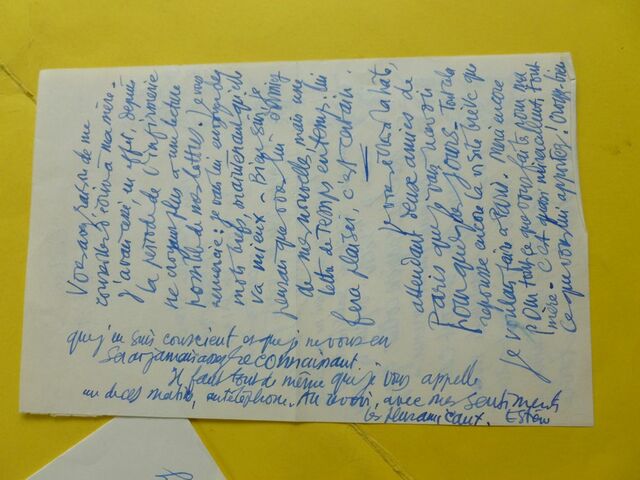 Vous avez raison de me
conseiller d'écrire à ma mère.
J'avais cessé, en effet, depuis
la retraite de l'infirmière
ne croyant plus à une lecture
possible de mes lettres. Je vous
remercie : je vais lui envoyer des
mots brefs, maintenant qu'elle
va mieux - Bien sûr, je
pensais que vous lui donniez
de mes nouvelles, mais une
lettre de temps en temps lui
fera plaisir, c'est certain.
Je vous écris à la hâte,
attendant deux amies de
Paris que je vais revoir
pour quelques jours - Tout cela
repousse encore la visite brève que
je voulais faire à Paris. Merci encore
pour tout ce que vous faites pour ma
mère - C'est quasi miraculeux, tout
ce que vous lui apportez ! Croyez bien
que j'en suis conscient et que je ne vous en
serai jamais assez reconnaissant.
Il faut tout de même que je vous appelle
un de ces matins, au téléphone. Au revoir, avec mes sentiments
les plus amicaux.